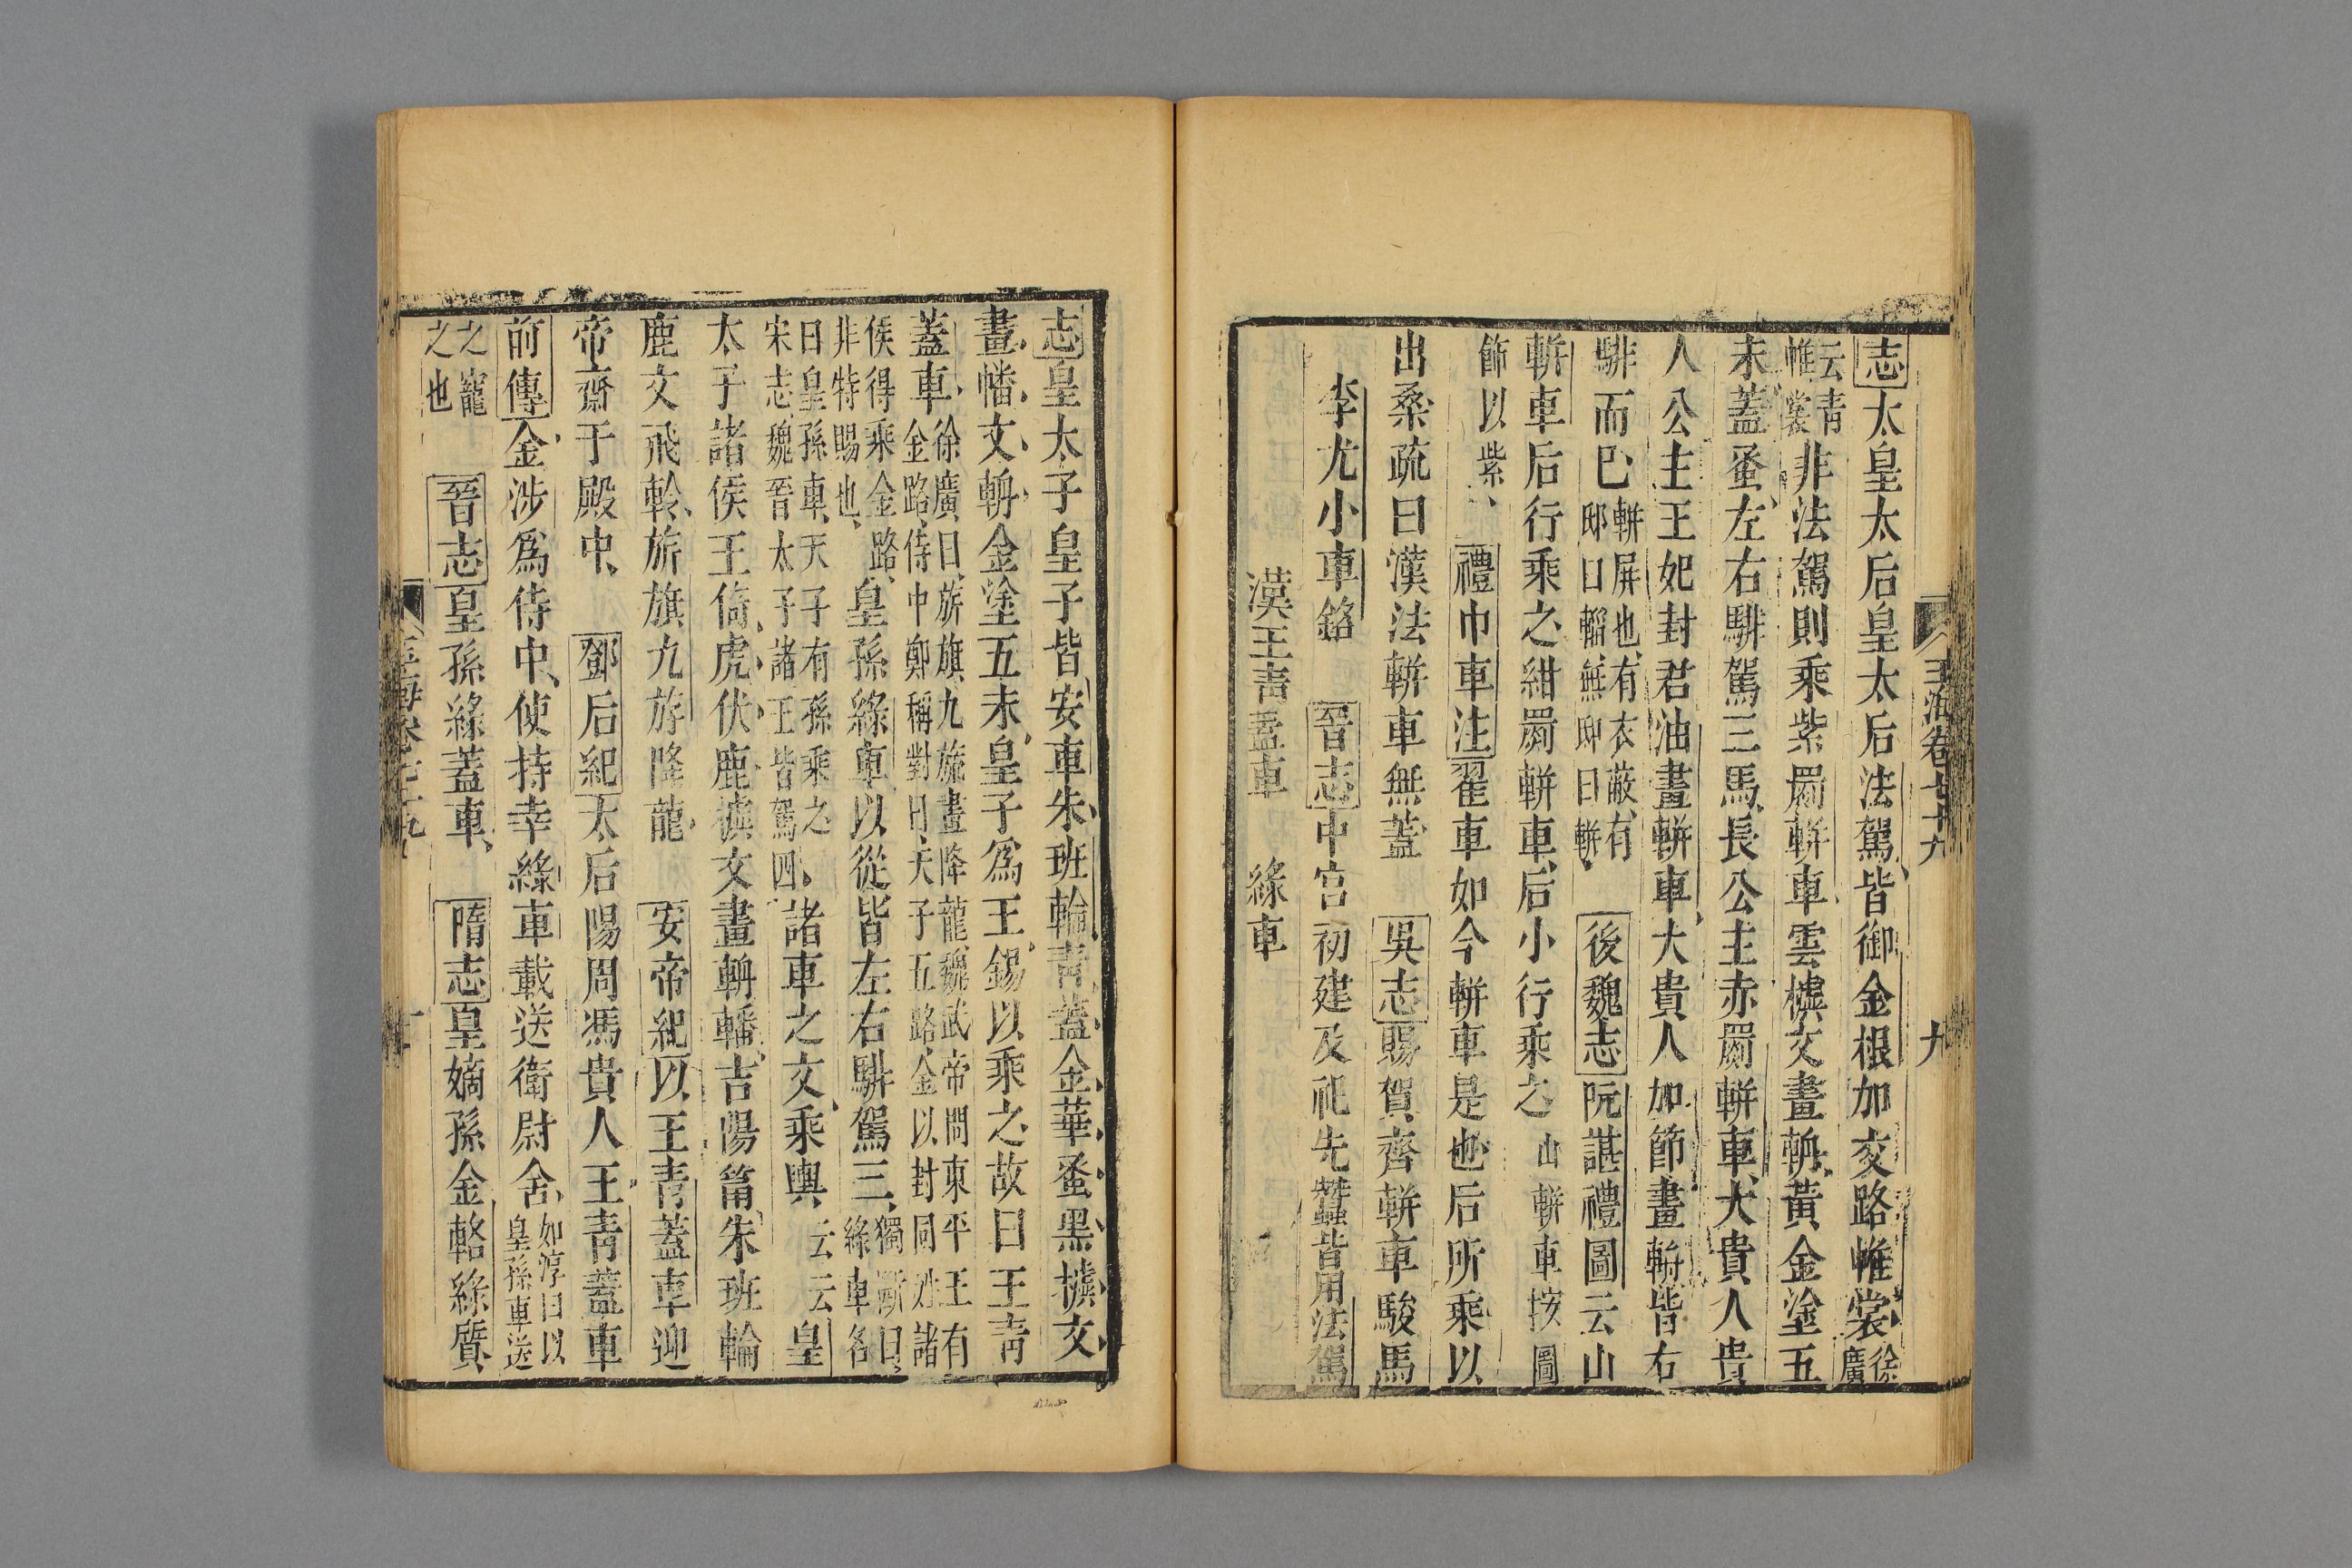 玉海卷七十九 九
志太皇太后皇太后法駕皆御金根加交路帷裳徐廣
云青帷裳非法駕則乘紫罽軿車雲㯫文畫輈黃金塗五
末蓋蚤左右騑駕三馬長公主赤罽軿車大貴人貴
人公主王妃封君油畫軿車大貴人加節畫輈皆右
騑而已軿屏也有衣蔽有邸曰輜無邸曰軿後魏志阮諶禮圖云山
軿車后行乘之紺罽軿車后小行乘之山軿車按圖
飾以紫禮巾車注翟車如今軿車是也后所乘以
出桑疏曰漢法軿車無蓋吳志賜賀齊軿車駿馬
李尤小車銘晉志中宮初建及祀先蠶皆用法駕
漢王青蓋車 綠車
志皇太子皇子皆安車朱班輪青蓋金華蚤黑㯫文
畫幡文輈金塗五末皇子為王錫以乘之故曰王青
蓋車徐廣曰旂旗九旒畫降龍魏武帝問東平王有金路侍中鄭稱對曰天子五路金以封同姓諸
侯得乘金路非特賜也皇孫綠車以從皆左右騑駕三獨斷曰綠車各
曰皇孫車天子有孫乘之宋志魏晉太子諸王皆駕四諸車之文乘輿云云皇
太子諸侯王倚虎伏鹿㯫文畫輈轓吉陽筩朱班輪
鹿文飛軨旂旗九斿降龍安帝紀以王青蓋車迎
帝齋于殿中鄧后紀太后賜周馮貴人王青蓋車
前傳金涉為侍中使持幸綠車載送衛尉舍如淳曰以皇孫車送
之寵之也晉志皇孫綠蓋車隋志皇嫡孫金輅綠質